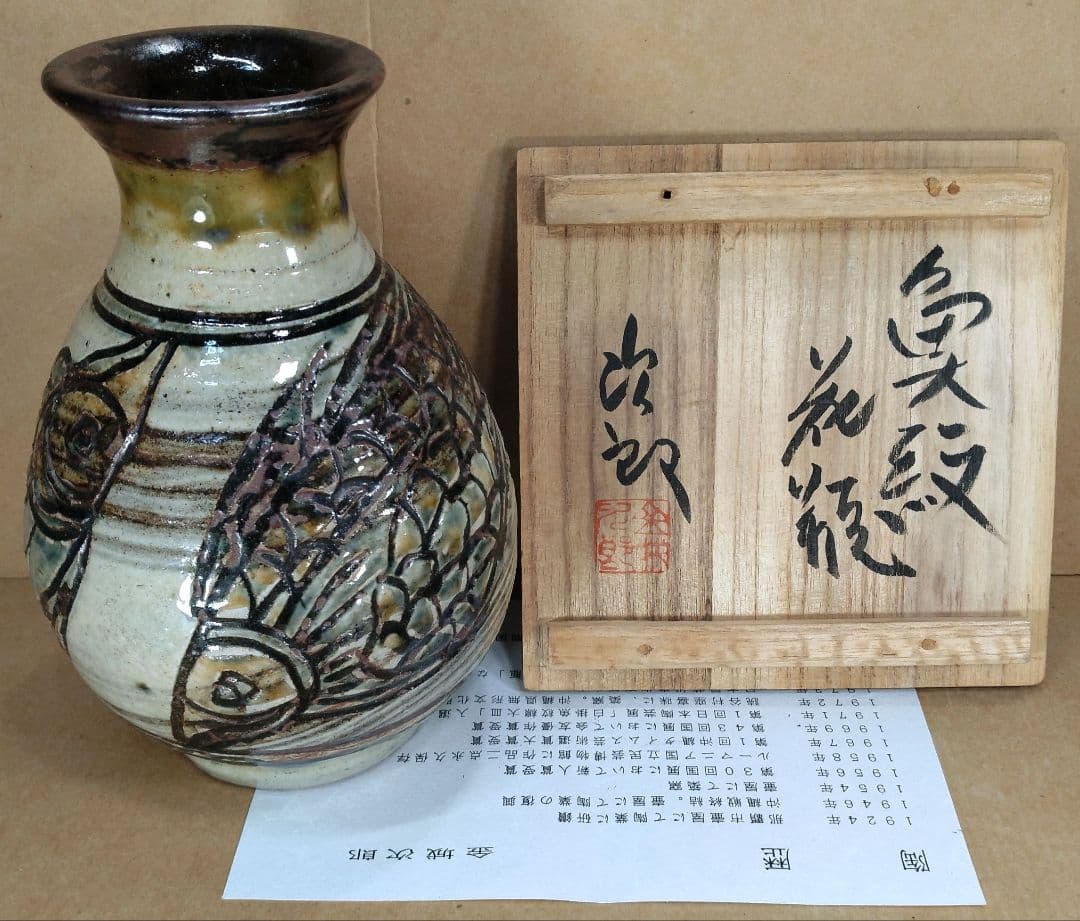 魚紋
花瓶
次郎
陶 歴 金城次郎
1924年 那覇市壷屋にて陶業に研鑽
1946年 沖縄戦終結。壷屋にて陶業の復興
1954年 壷屋にて築窯
1956年 第30回国展において新人賞受賞
1958年 ルーマニア国立民芸博物館に作品二点永久保存
1967年 第1回沖縄タイムス芸術選賞大賞受賞
1969年 第43回国展において会友優作賞受賞
1971年 第1回日本陶芸展「白掛魚紋大皿」入
1972年 読谷村座喜味に、築窯。沖縄県無形文化